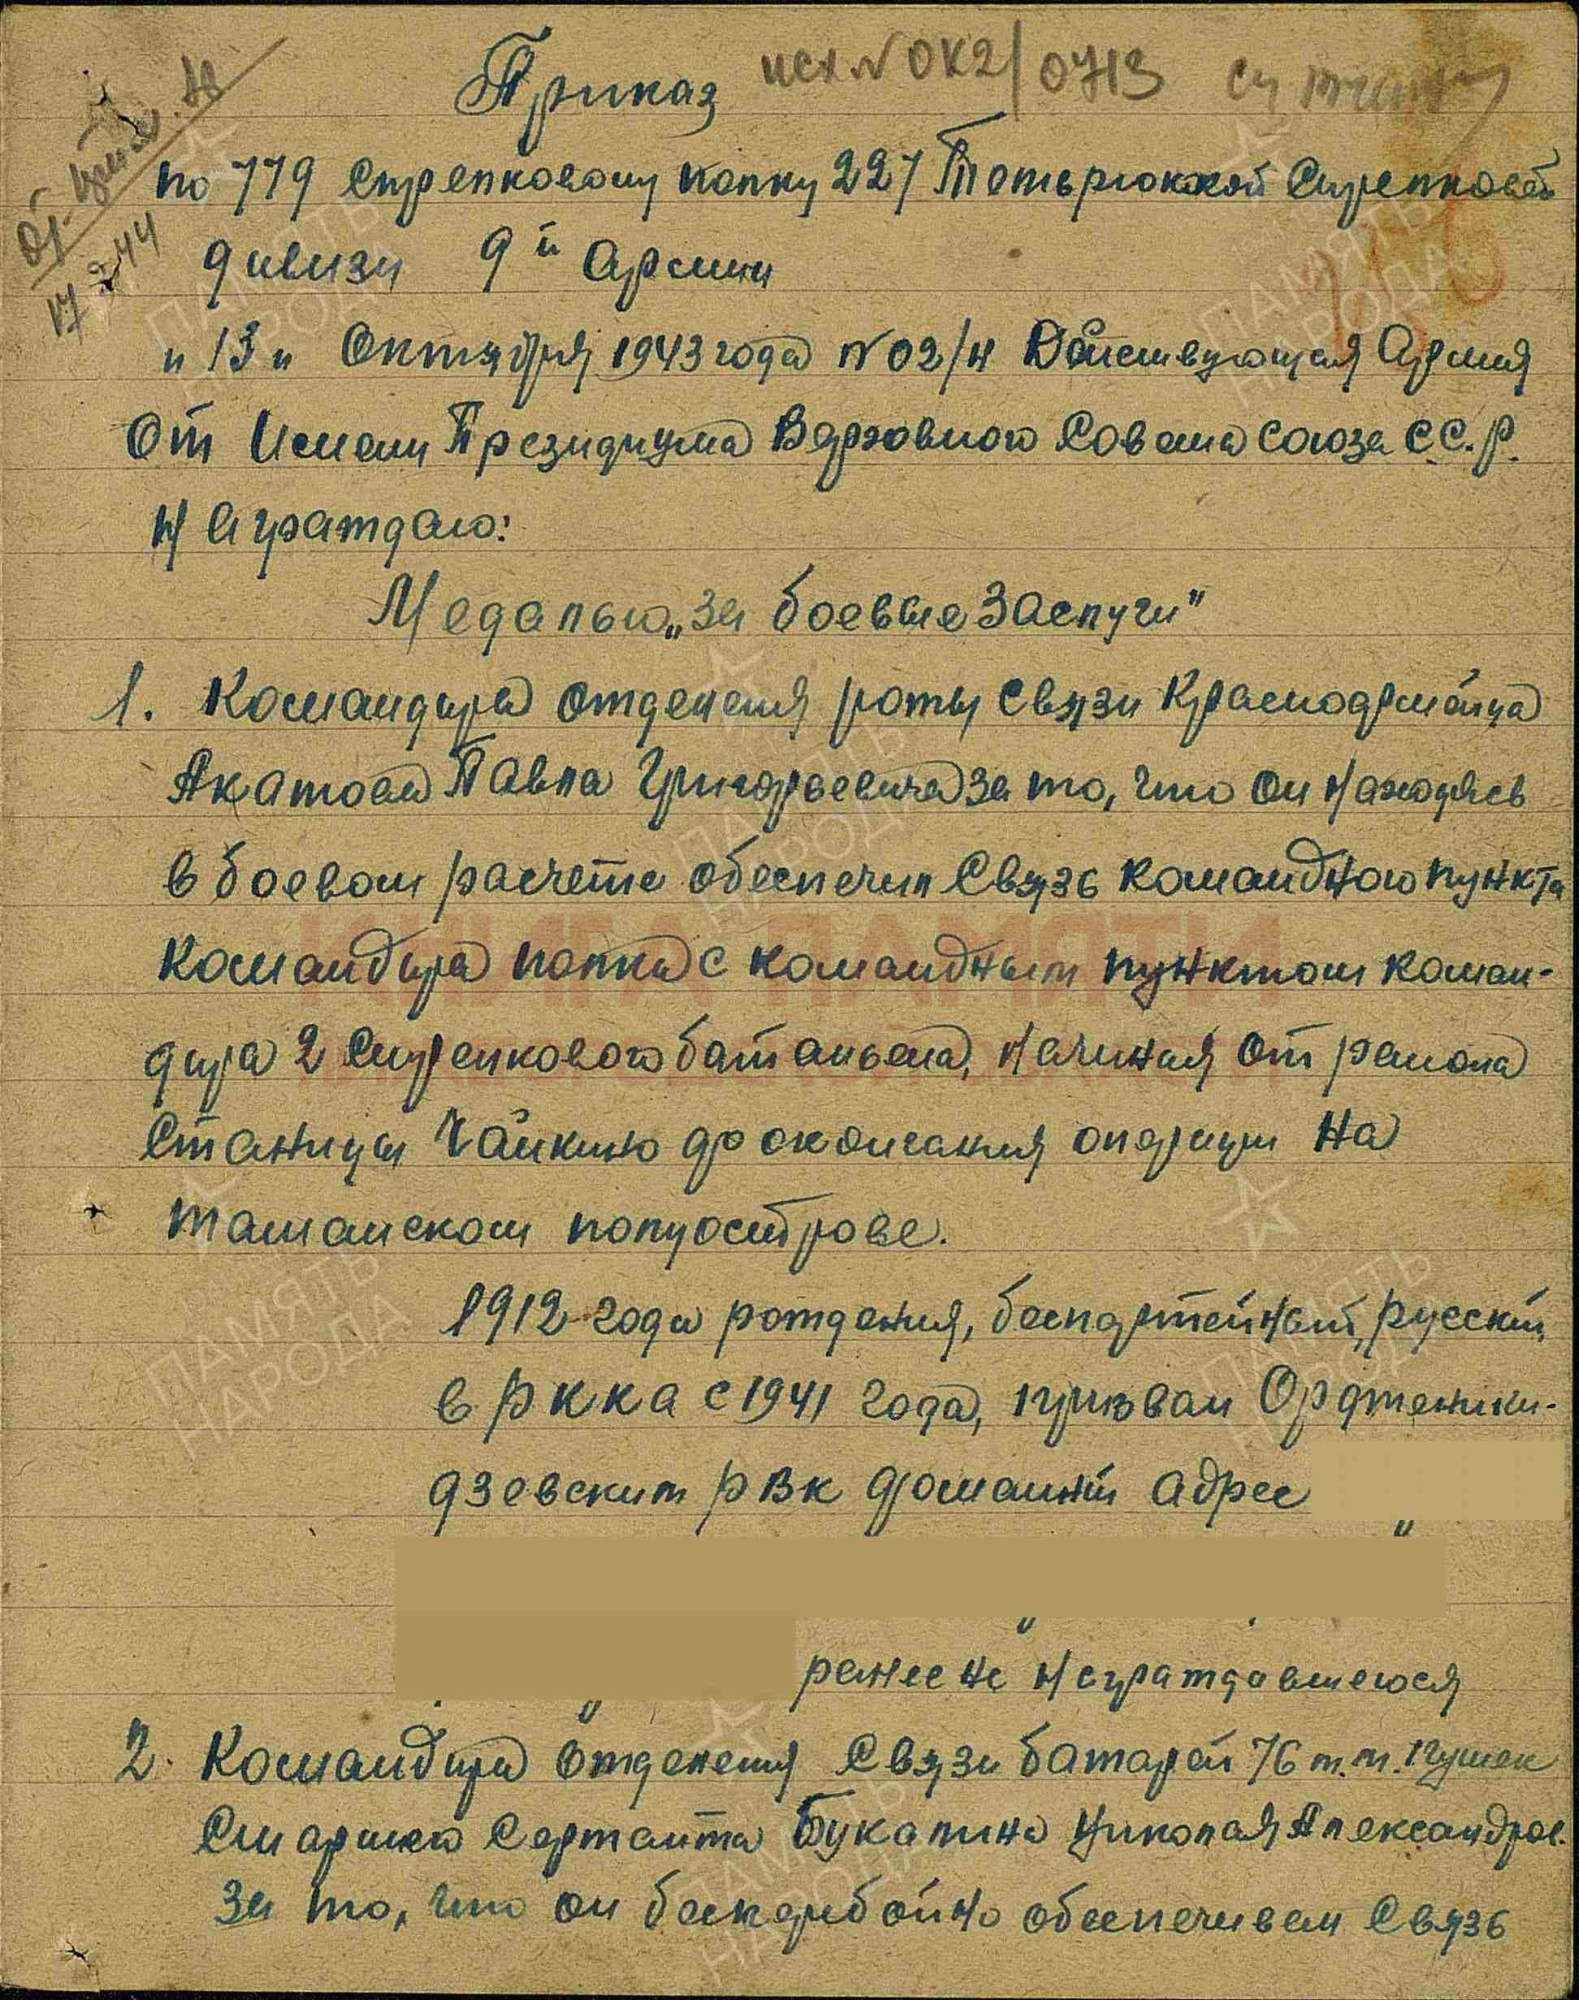 Приказ исх № ОК2/0713
по 779 Стрелковому полку 227 Темрюкской Стрелковой
дивизи 9й Армии
"13" Октября 1943 года № 02/н Действующая Армия
От Имени Президиума Верховного Совета Союза С.С.Р.
Награждаю:
Медалью „За боевые Заслуги"
1. Командира отделения роты Связи Красноармейца
Акатова Павла Григорьевича за то, что он находясь
в боевом расчете обеспечил Связь командного пункта
командира полка с командным пунктом коман-
дира 2 Стрелкового батальена, начиная от района
Станицы Чайкино до окончания операции на
таманском полуострове.
1912 года рождения, беспартейный, русский,
в РККА с 1941 года, призван Орджоники-
дзевским РВК домашний адрес
ранее не награждавшегося
2. Командира отделения Связи батареи 76 м.м. пушек
Старшего Сержанта Букалина Николая Александров.
За то, что он бесперебойно обеспечивал Связь
17 44
ПАМЯТЬ НАРОДА
КНИГА ПАМЯТИ